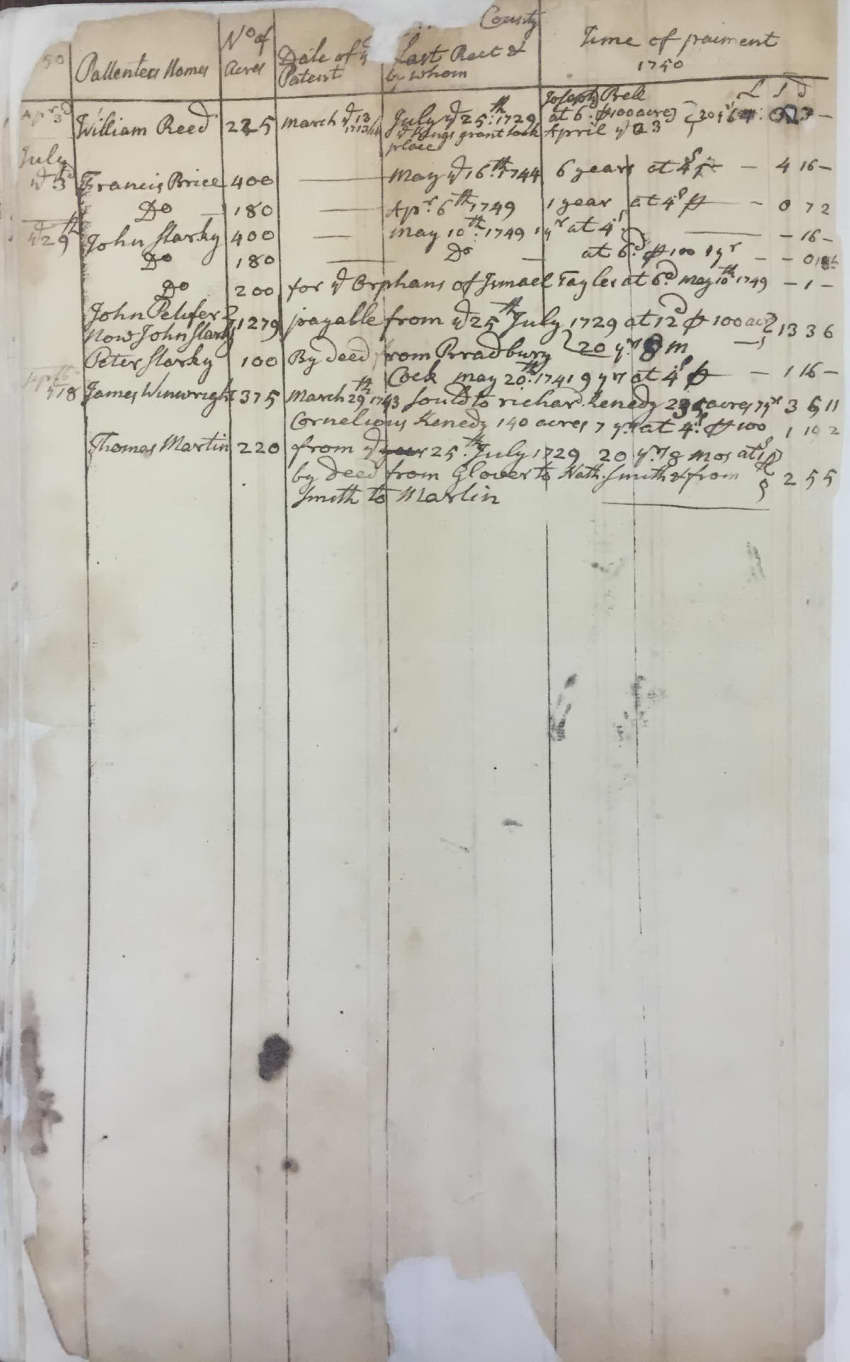 County
50 Pattentees Names No of Acres Date of ye Patent Last Rect & by whom Time of paiment 1750
£ S d
Joseph Bell
Apr 3d William Reed 225 March ye 13 July ye 25th 1729 at 6d ₱ 100 acres
& kings grant took place April ye 23
July
ye 3d Francis Brice 400 — May ye 16th 1744 6 years at 4s ₱ — 4 16 —
Do — 180 — Apr 6th 1749 1 year at 4s ₱ — 0 7 2
ye 29th John Starky 400 — May 10th 1749 1 yr at 4s — — 16 —
Do 180 — Do — at 6d ₱ 100 1 yr — — 0
Do 200 for ye Orphans of Ismael Tayler at 6d May 10th 1749 — 1 —
John Pelifer
Now John Starky 1279 payable from ye 25th July 1729 at 12d ₱ 100 acr 13 3 6
20 yrs 8 m
Peter Starky 100 By deed from Bradbury
Cock May 20th 1741 9 yrs at 4s ₱ — 1 16 —
18 James Winwright 375 March 29th 1743 sould to richard Kenedy acres 7 yr 3 11
Cornelious Kenedy 140 acres 7 yrs at 4s ₱ 100 1 19 2
Thomas Martin 220 from ye 25th July 1729 20 yrs 8 mos at
by deed from Glover to Nath. Smith & from 2 5 5
Smith to Martin